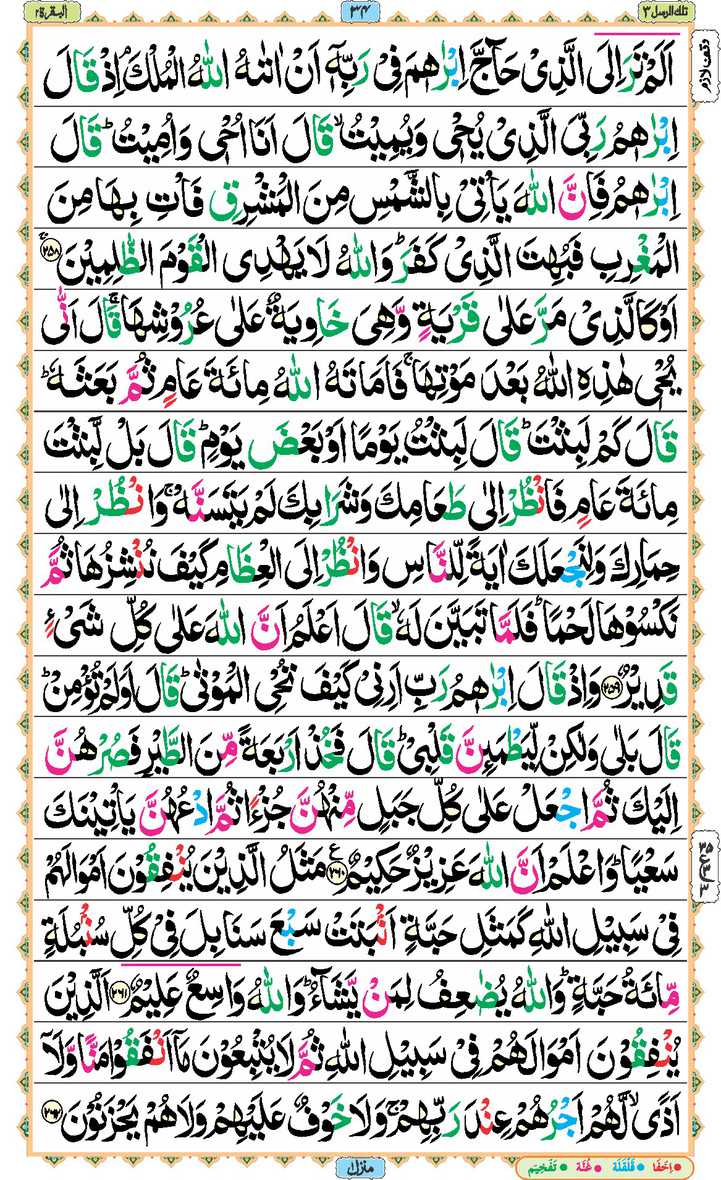 تلك الرسل ٣
٣٤
البقرة ٢
وقف لازم
اَلَمْ تَرَ اِلَى الَّذِىْ حَآجَّ اِبْرٰهٖمَ فِىْ رَبِّهٖٓ اَنْ اٰتٰىهُ اللّٰهُ الْمُلْكَۘ اِذْ قَالَ
اِبْرٰهٖمُ رَبِّىَ الَّذِىْ يُحْىٖ وَيُمِيْتُۙ قَالَ اَنَا اُحْىٖ وَاُمِيْتُؕ قَالَ
اِبْرٰهٖمُ فَاِنَّ اللّٰهَ يَاْتِىْ بِالشَّمْسِ مِنَ الْمَشْرِقِ فَاْتِ بِهَا مِنَ
الْمَغْرِبِ فَبُهِتَ الَّذِىْ كَفَرَؕ وَاللّٰهُ لَا يَهْدِى الْقَوْمَ الظّٰلِمِيْنَۚ‏ ﴿۲۵۸﴾
اَوْ كَالَّذِىْ مَرَّ عَلٰى قَرْيَةٍ وَّهِىَ خَاوِيَةٌ عَلٰى عُرُوْشِهَاۚ قَالَ اَنّٰى
يُحْىٖ هٰذِهِ اللّٰهُ بَعْدَ مَوْتِهَاۚ فَاَمَاتَهُ اللّٰهُ مِائَةَ عَامٍ ثُمَّ بَعَثَهٗؕ
قَالَ كَمْ لَبِثْتَؕ قَالَ لَبِثْتُ يَوْمًا اَوْ بَعْضَ يَوْمٍؕ قَالَ بَلْ لَّبِثْتَ
مِائَةَ عَامٍ فَانْظُرْ اِلٰى طَعَامِكَ وَشَرَابِكَ لَمْ يَتَسَنَّهْۚ وَانْظُرْ اِلٰى
حِمَارِكَ وَلِنَجْعَلَكَ اٰيَةً لِّلنَّاسِ وَانْظُرْ اِلَى الْعِظَامِ كَيْفَ نُنْشِزُهَا ثُمَّ
نَكْسُوْهَا لَحْمًاؕ فَلَمَّا تَبَيَّنَ لَهٗۙ قَالَ اَعْلَمُ اَنَّ اللّٰهَ عَلٰى كُلِّ شَىْءٍ
قَدِيْرٌ ﴿۲۵۹﴾ وَاِذْ قَالَ اِبْرٰهٖمُ رَبِّ اَرِنِىْ كَيْفَ تُحْىِ الْمَوْتٰىؕ قَالَ اَوَلَمْ تُؤْمِنْؕ
قَالَ بَلٰى وَلٰكِنْ لِّيَطْمَئِنَّ قَلْبِىْؕ قَالَ فَخُذْ اَرْبَعَةً مِّنَ الطَّيْرِ فَصُرْهُنَّ
اِلَيْكَ ثُمَّ اجْعَلْ عَلٰى كُلِّ جَبَلٍ مِّنْهُنَّ جُزْءًا ثُمَّ ادْعُهُنَّ يَاْتِيْنَكَ
سَعْيًاؕ وَاعْلَمْ اَنَّ اللّٰهَ عَزِيْزٌ حَكِيْمٌ ﴿۲۶۰﴾ مَثَلُ الَّذِيْنَ يُنْفِقُوْنَ اَمْوَالَهُمْ
فِىْ سَبِيْلِ اللّٰهِ كَمَثَلِ حَبَّةٍ اَنْۢبَتَتْ سَبْعَ سَنَابِلَ فِىْ كُلِّ سُنْۢبُلَةٍ
مِّائَةُ حَبَّةٍؕ وَاللّٰهُ يُضٰعِفُ لِمَنْ يَّشَآءُؕ وَاللّٰهُ وَاسِعٌ عَلِيْمٌ ﴿۲۶۱﴾ اَلَّذِيْنَ
يُنْفِقُوْنَ اَمْوَالَهُمْ فِىْ سَبِيْلِ اللّٰهِ ثُمَّ لَا يُتْبِعُوْنَ مَآ اَنْفَقُوْا مَنًّا وَّلَآ
اَذًىۙ لَّهُمْ اَجْرُهُمْ عِنْدَ رَبِّهِمْۚ وَلَا خَوْفٌ عَلَيْهِمْ وَلَا هُمْ يَحْزَنُوْنَ ﴿۲۶۲﴾
منزل ۱
اِخفَا قَلْقَلَه غُنَّه تَفْخِيْم